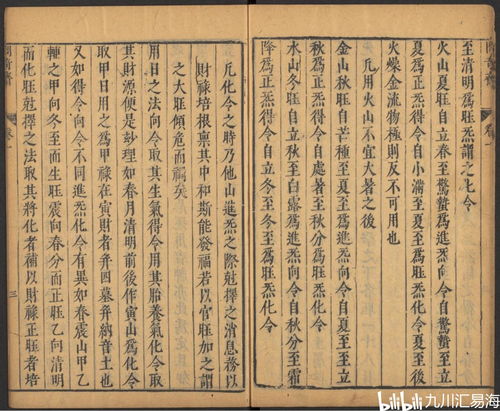 至清明爲旺炁謂之化令
火山夏旺自立春至驚蟄爲進炁向令自驚蟄至立
夏爲正炁得令自小滿至夏至爲旺炁化令
火燥金流物極則反不可用也
凡用火山不宜大暑之後
金山秋旺自芒種至夏至爲進炁向令自夏至至立
秋爲正炁得令自處暑至秋分爲旺炁化令
水山冬旺自立秋至白露爲進炁向令自秋分至霜
降爲正炁得令自立冬至冬至爲旺炁化令
凡化令之時乃他山進炁之際尅擇之消息務以
財祿培根稟其中和斯能發福若以官旺加之謂
之大旺傾危而禍矣
用日之法向令取其生氣得令用其胎養氣化令取
其財源便是妙理如春月清明前後作寅山爲化令
取甲日用之爲甲祿在寅財者弁四墓弁納音土也
又如得令向令不同進炁化令有異如春震山甲乙
輔之甲向冬至而生旺震向春分而正旺乙向清明
而化旺尅擇之法取其將化者補以財祿正旺者培
卷一
三
bilibili 九川汇易海